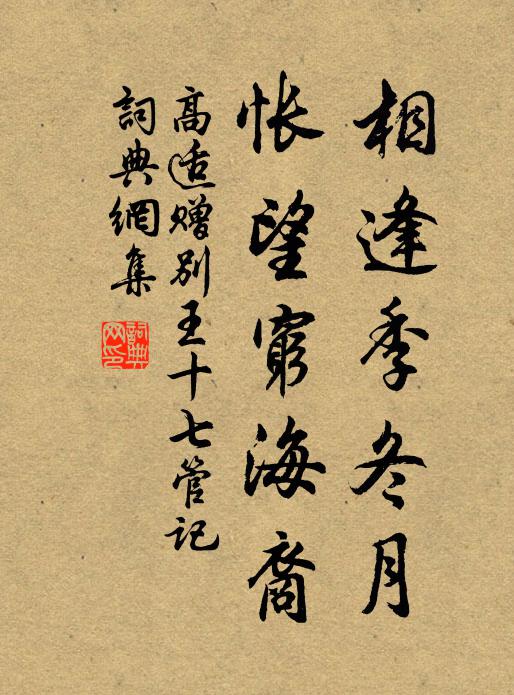 相逢季冬月
悵望窮海裔
高适贈别王十七管记
詞典網集
詞典
网印